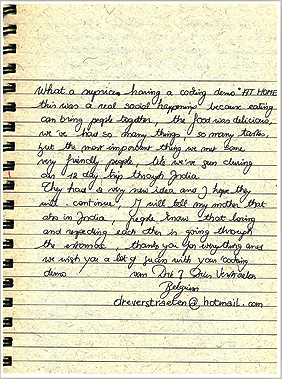 What a suprise having a cooking demo "AT HOME
this was a real social happening because eating
can bring people together, the food was delicious
we've had so many things, so many tastes,
but the most important thing we met some
very friendly people, like we've seen during
our 12 day trip through India.
They had a very new idea and I hope they
will continue, I will tell my mother that
also in India, people know that loving
and respecting each other is going through
the stomac, thank you for everything and
we wish you a lot of with your cooking
demo
Belgium
dreverstraeten@hotmail.com